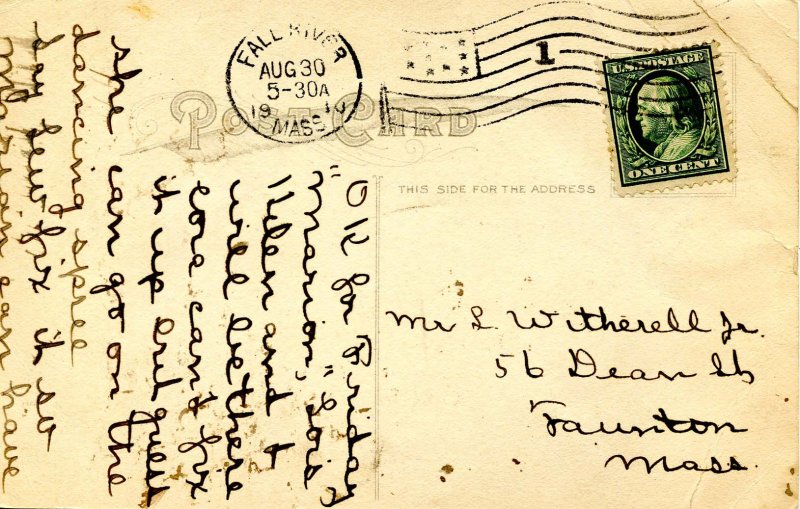 FALL RIVER
AUG 30
5-30A
1910
MASS
1
U.S. POSTAGE
ONE CENT
POST CARD
THIS SIDE FOR THE ADDRESS
Mr L. Witherell Jr.
56 Dean St
Taunton
Mass.
"OK for Friday,
Marion," Lois
Helen and I
will be there
can't fix
it up but guess
she can go on the
dancing spree
say Lew fix it so
can have